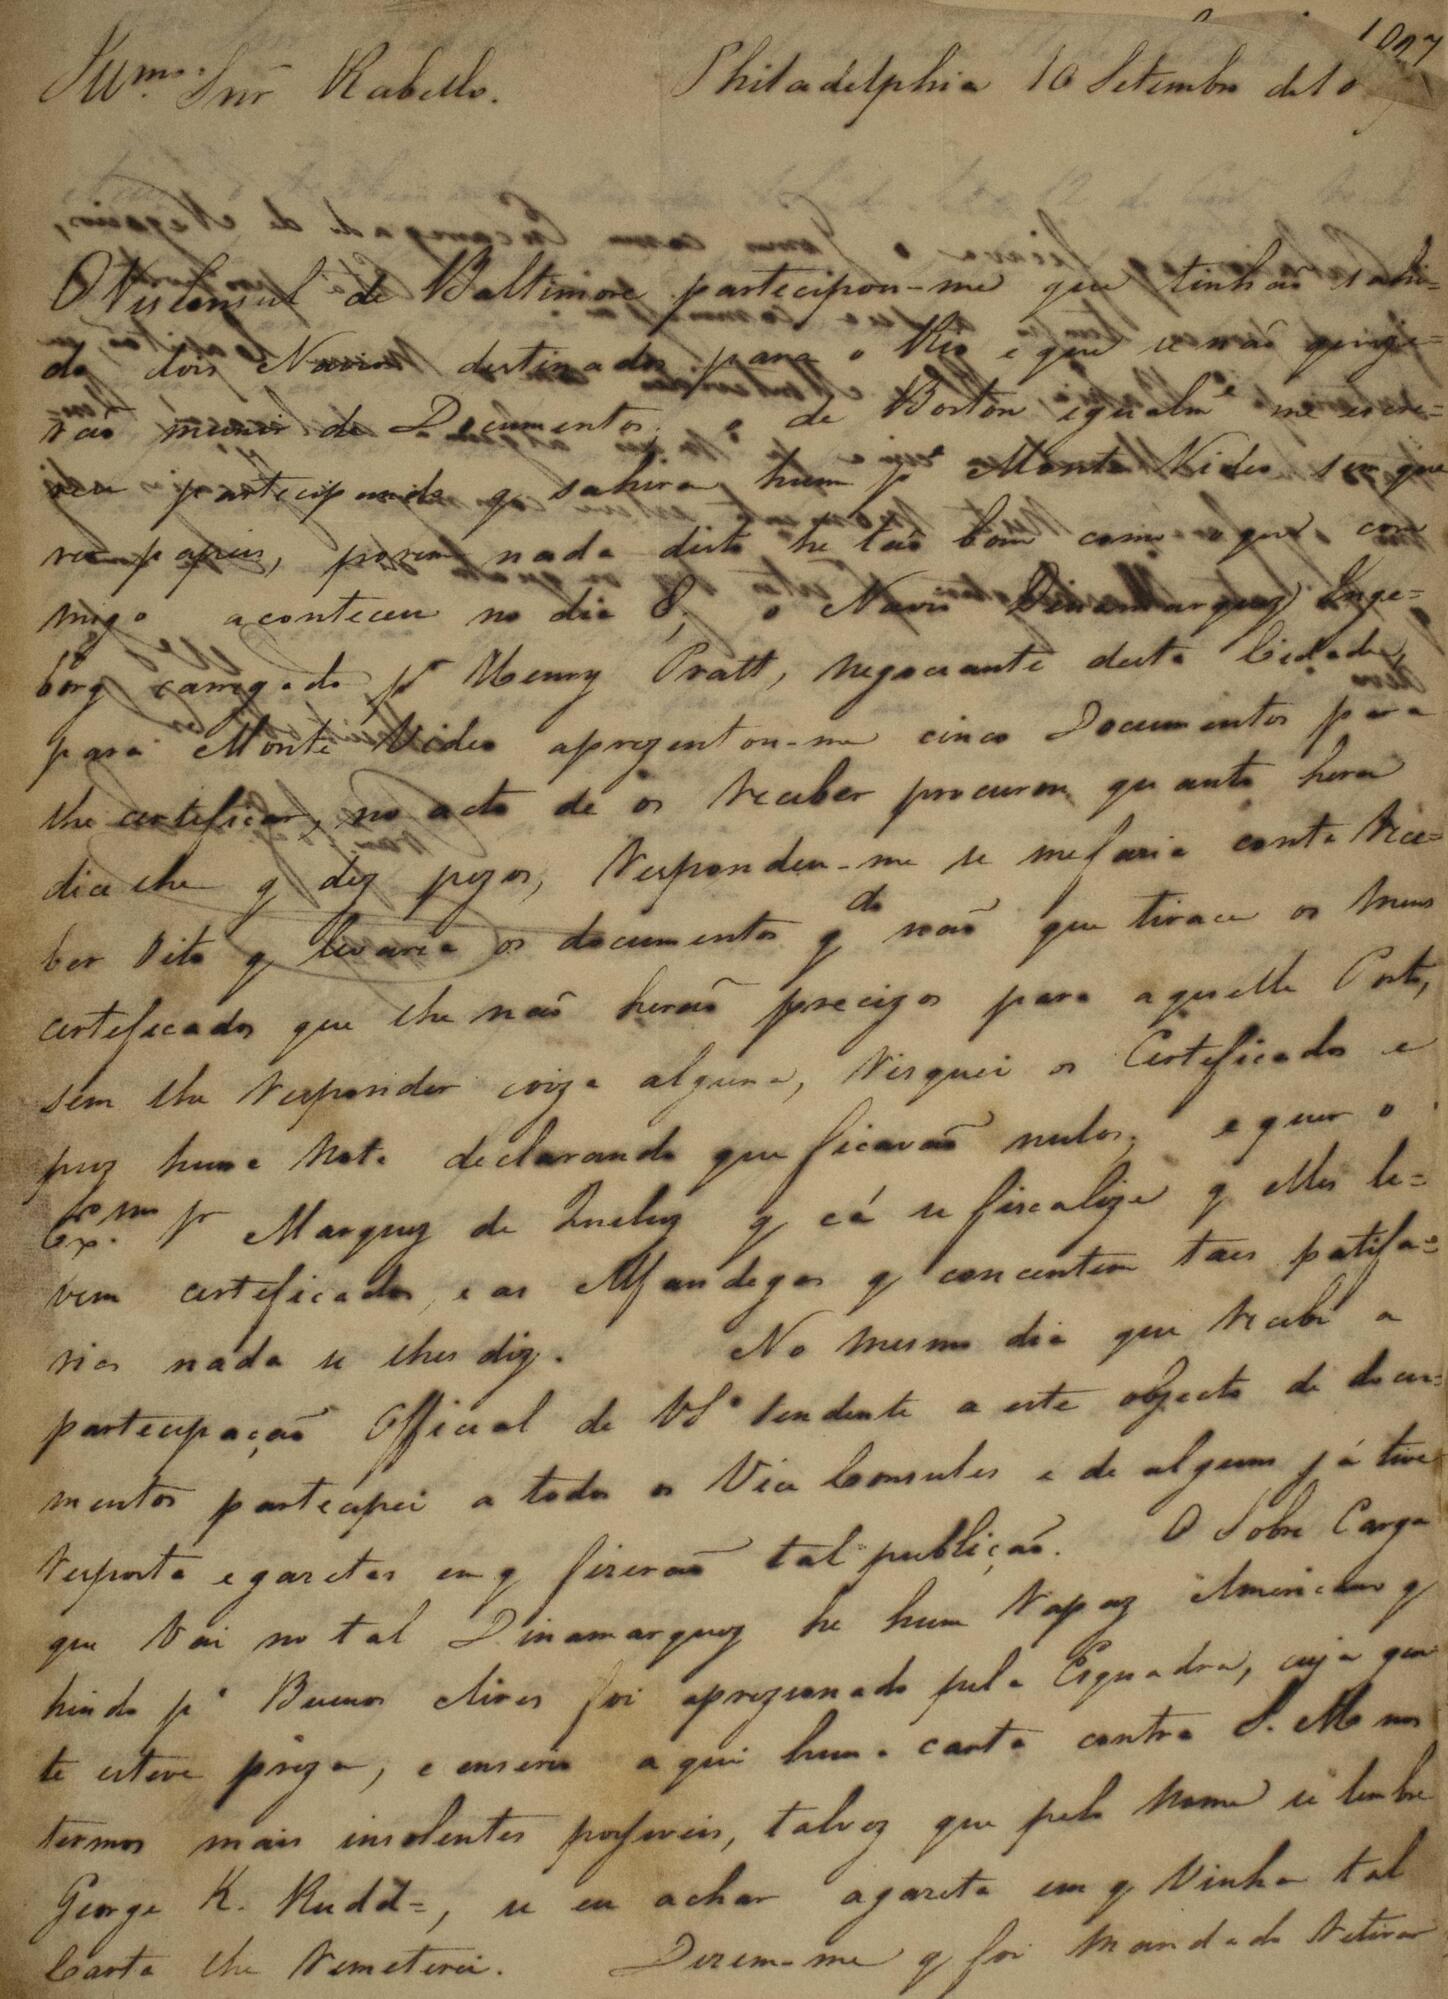 Illmo. Snr Rabello. Philadelphia 10 Setembro de 18
O Visconsul de Baltimore partecipou-me que tinhão sahi=
do dois Navios destinados para o Rio e que se não quize=
rão munir de Documentos, o de Boston igualme. me escre=
veu partecipando q sahira hum pa. Monte Video sem que
papeis, porem nada disto he tão bom como o que com
migo aconteceu no dia 8, o Navio Dinamarquez Inge=
borg carregado pr Henry Pratt, negociante desta Cidade,
para Monte Video aprezentou-me cinco Documentos para
lhe certeficar, no acto de os receber procurou quanto hera
dice lhe q dez pezos, Respondeu-me se me faria conta rece=
ber oito q levaria os documentos q do não que tirace os meus
certeficados que lhe não herão precizos para aquelle Porto,
sem lhe responder coiza alguma, risquei os Certeficados e
puz huma Nota declarando que ficavão nulos, e quer o
Exmo. Sr Marquez de Queluz q cá se fiscalize q elles le=
vem certeficados, e as Alfandegas q concentem taes patifa=
rias nada se lhes diz. No mesmo dia que recebi a
partecipação Official de VSa tendente a este objecto de docu=
mentos partecipei a todos os Vice Consules e de alguns já tive
resposta e gazetas em q fizerão tal publição. O Sobre Carga
que vai no tal Dinamarquez he hum rapaz Americano q
hindo pa Buenos Aires foi aprezionado pela Esquadra, cuja gen
te esteve preza, e enserio aqui huma carta contra S. M nos
termos mais insolentes possiveis, talvez que pelo nome se lembre
George K. Rudd=, se eu achar a gazeta em q vinha tal
Carta lhe remeterei. Dizem-me q foi mandado retirar